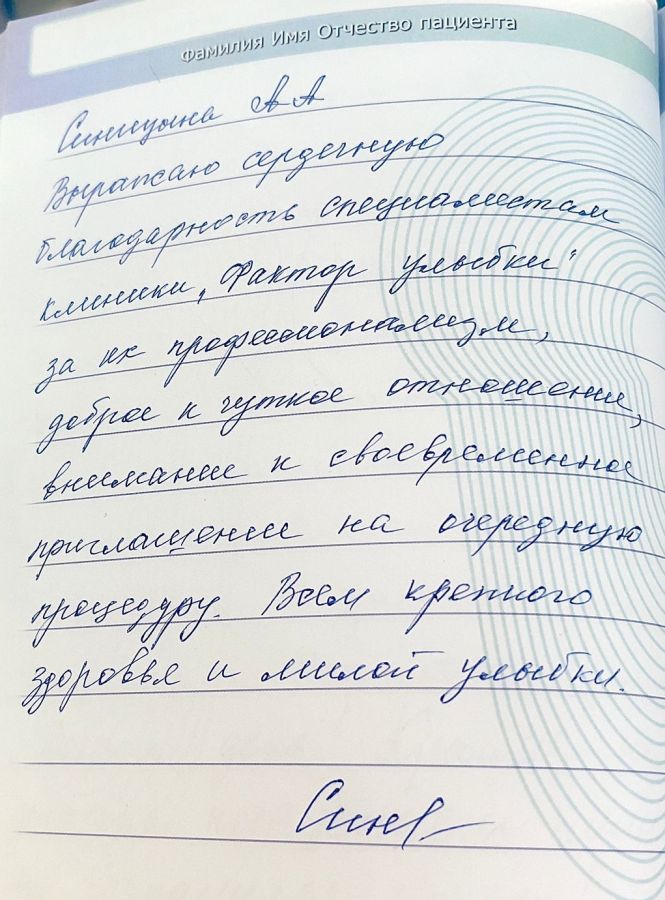 Фамилия Имя Отчество пациента
Синицына А А
Выражаю сердечную
благодарность специалистам
клиники „Фактор улыбки"
за их профессионализм,
доброе и чуткое отношение,
внимание и своевременное
приглашение на очередную
процедуру. Всем крепкого
здоровья и милой улыбки.